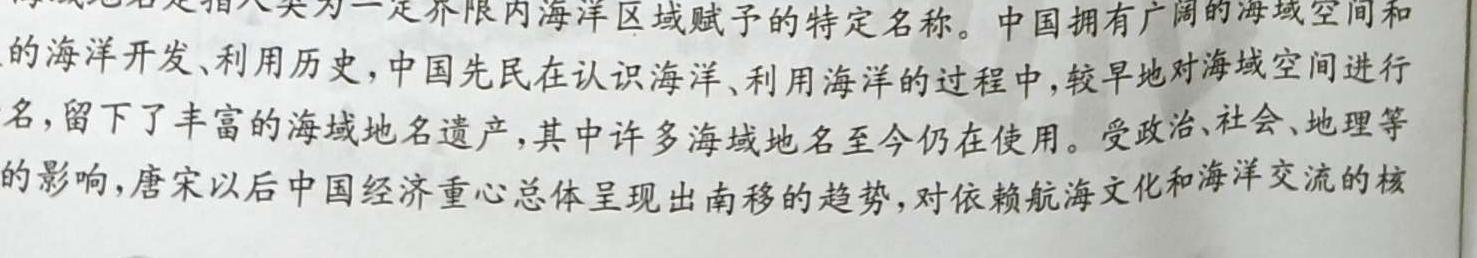 海域地名是指人类为一定界限内海洋区域赋予的特定名称。中国拥有广阔的海域空间和
的海洋开发、利用历史,中国先民在认识海洋、利用海洋的过程中,较早地对海域空间进行
名,留下了丰富的海域地名遗产,其中许多海域地名至今仍在使用。受政治、社会、地理等
的影响,唐宋以后中国经济重心总体呈现出南移的趋势,对依赖航海文化和海洋交流的核